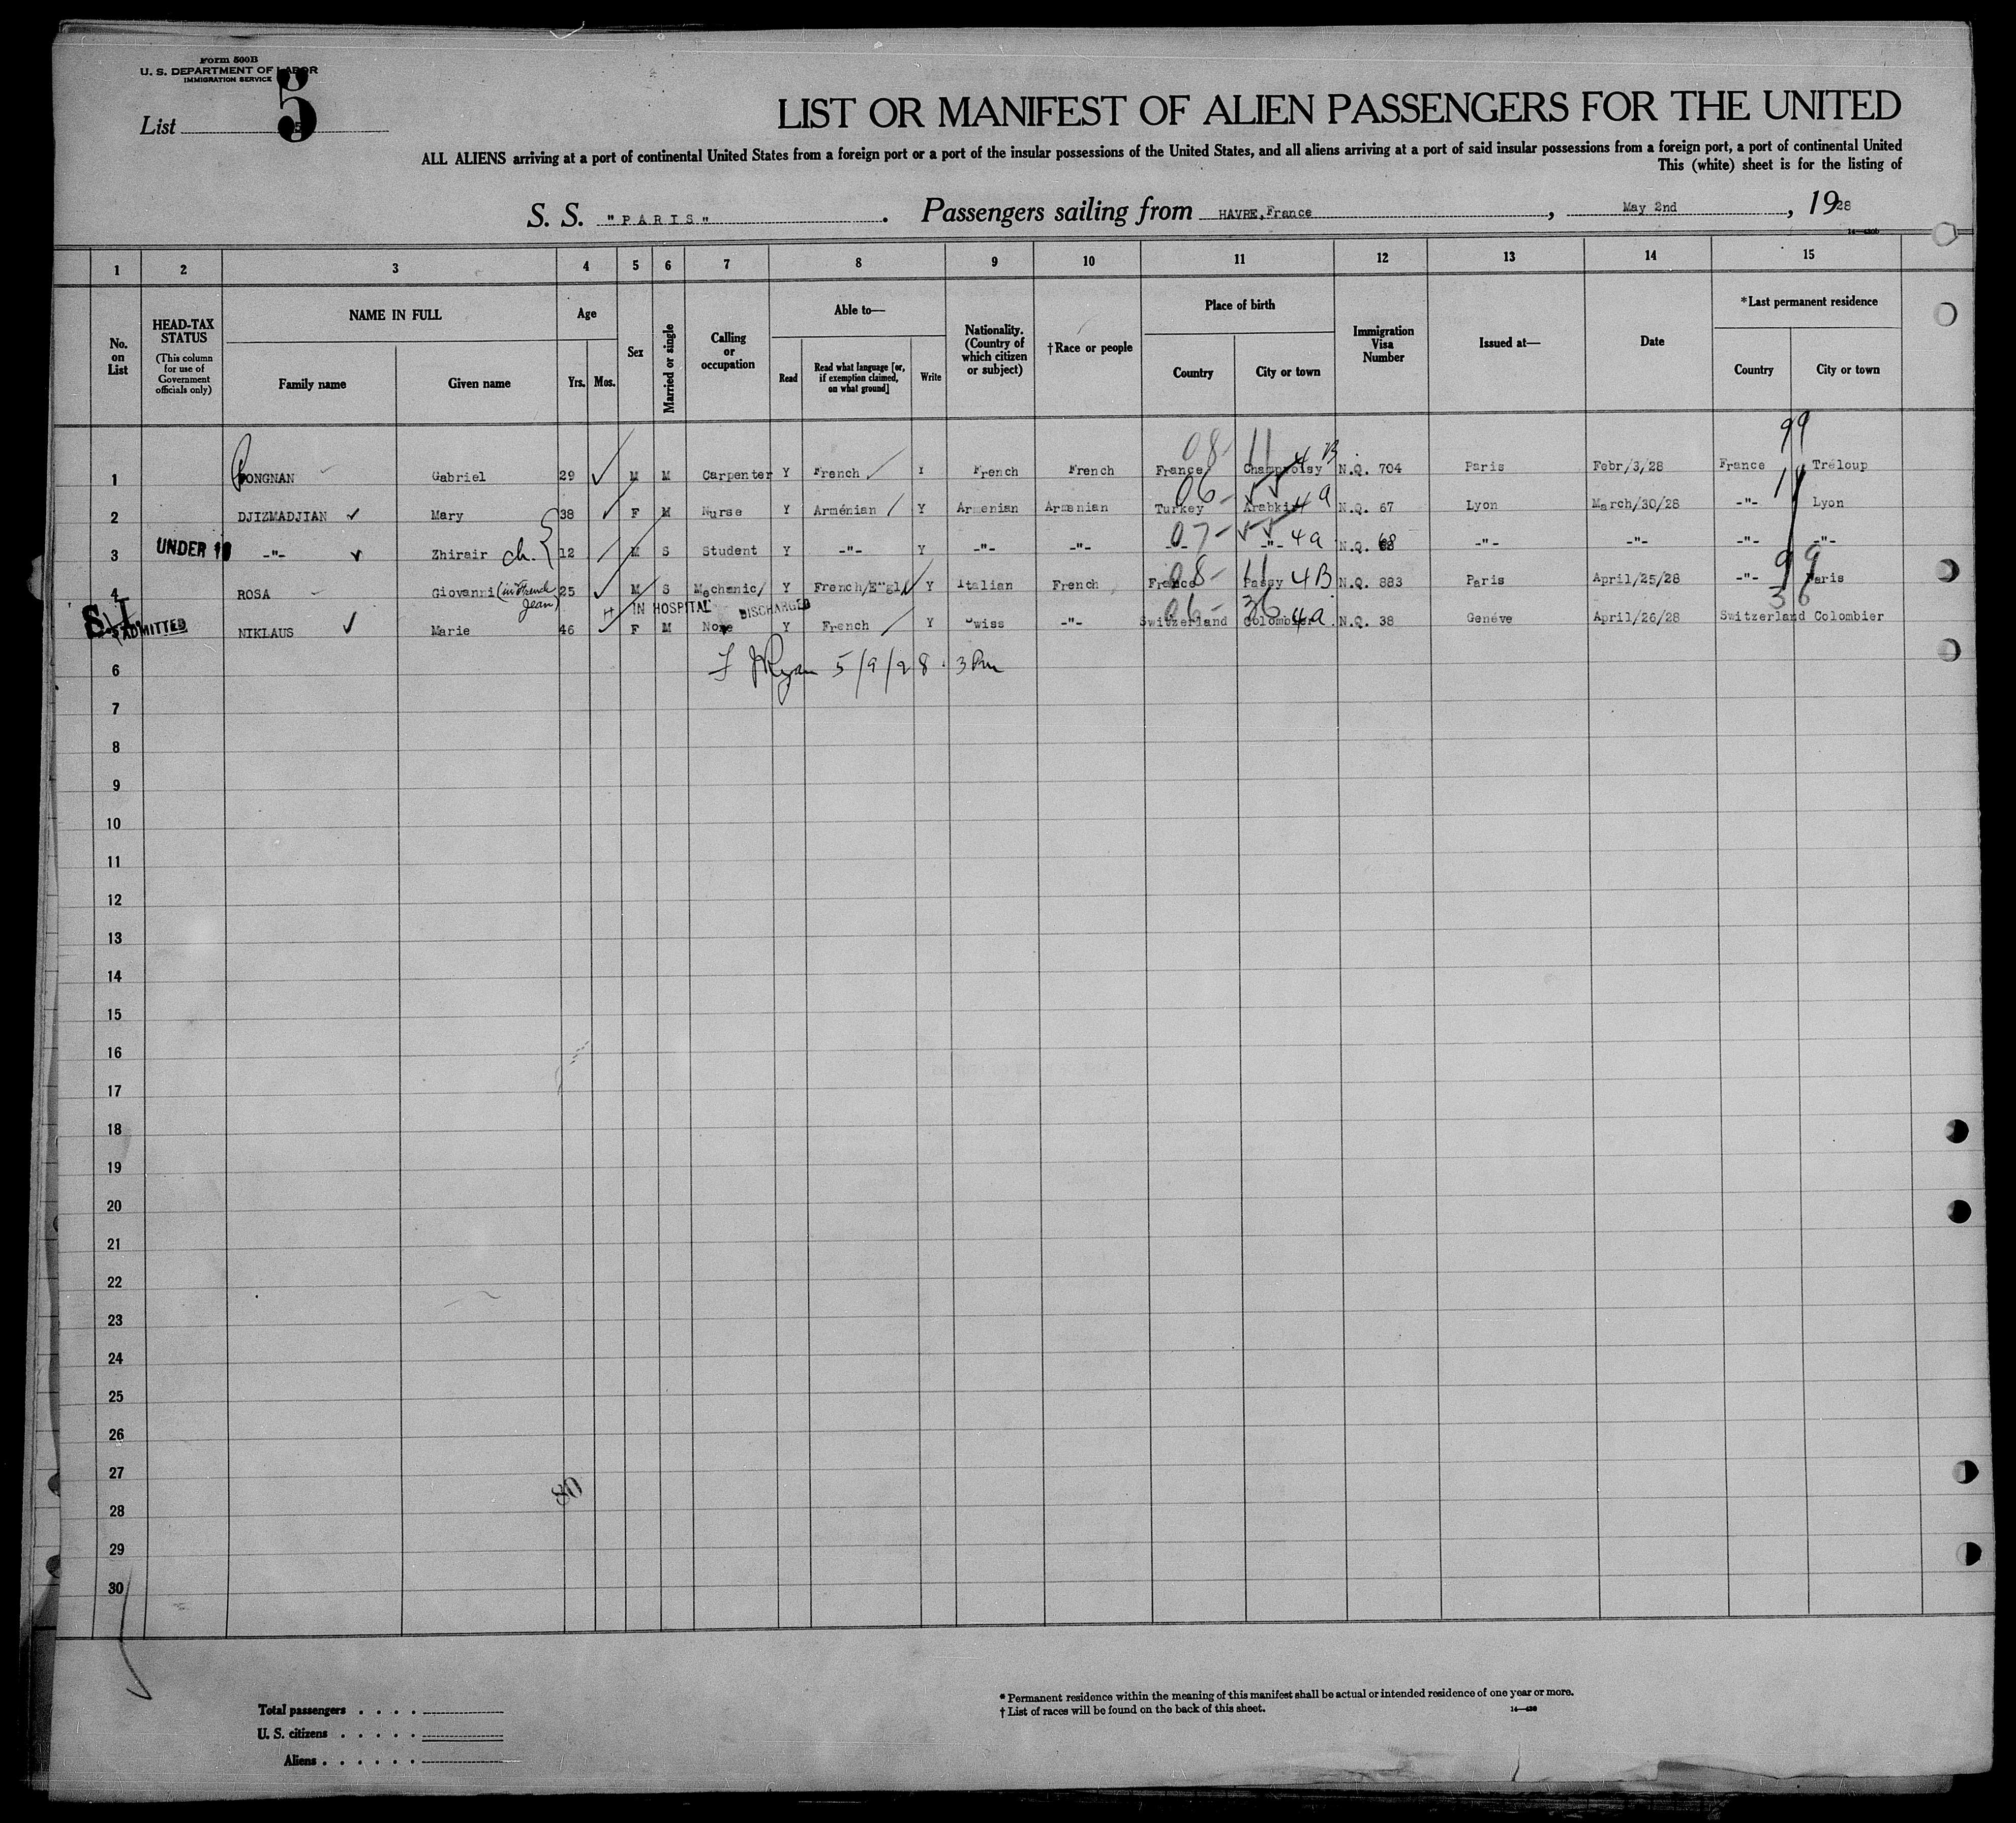 Form 500B
U. S. DEPARTMENT OF LABOR
IMMIGRATION SERVICE
List 5
LIST OR MANIFEST OF ALIEN PASSENGERS FOR THE UNITED
ALL ALIENS arriving at a port of continental United States from a foreign port or a port of the insular possessions of the United States, and all aliens arriving at a port of said insular possessions from a foreign port, a port of continental United
This (white) sheet is for the listing of
S. S. "PARIS" . Passengers sailing from HAVRE, France , May 2nd , 1928
1 2 3 4 5 6 7 8 9 10 11 12 13 14 15
No. on List
HEAD-TAX STATUS (This column for use of Government officials only)
NAME IN FULL
Family name
Given name
Age
Yrs. Mos.
Sex
Married or single
Calling or occupation
Able to—
Read
Read what language [or, if exemption claimed, on what ground]
Write
Nationality. (Country of which citizen or subject)
†Race or people
Place of birth
Country
City or town
Immigration Visa Number
Issued at—
Date
*Last permanent residence
Country
City or town
08- 11 4B 99
1 Gabriel 29 M M Carpenter Y French Y French French France N.Q. 704 Paris Febr/3/28 France Tréloup
06- 4a
2 DJIZMADJIAN Mary 38 F M Nurse Y Arménian Y Armenian Armenian Turkey Arabkir N.Q. 67 Lyon March/30/28 -"- Lyon
07- 4a
3 UNDER 1 -"- Zhirair ch. 12 M S Student Y -"- Y -"- -"- -"- -"- N.Q. 68 -"- -"- -"- -"-
08- 11 4B 99
4 ROSA Giovanni (in French Jean) 25 M S Mechanic Y French/Engl Y Italian French France Passy N.Q. 883 Paris April/25/28 -"- Paris
S.I. H IN HOSPITAL DISCHARGED 06- 36 4a 36
5 ADMITTED NIKLAUS Marie 46 F M None Y French Y Swiss -"- Switzerland Colombier N.Q. 38 Genéve April/26/28 Switzerland Colombier
6 Ryan 5/9/28 . 3 Pm
7
8
9
10
11
12
13
14
15
16
17
18
19
20
21
22
23
24
25
26
27
28
29
30
Total passengers . . . .
U. S. citizens . . . . .
Aliens . . . . . .
* Permanent residence within the meaning of this manifest shall be actual or intended residence of one year or more.
† List of races will be found on the back of this sheet.